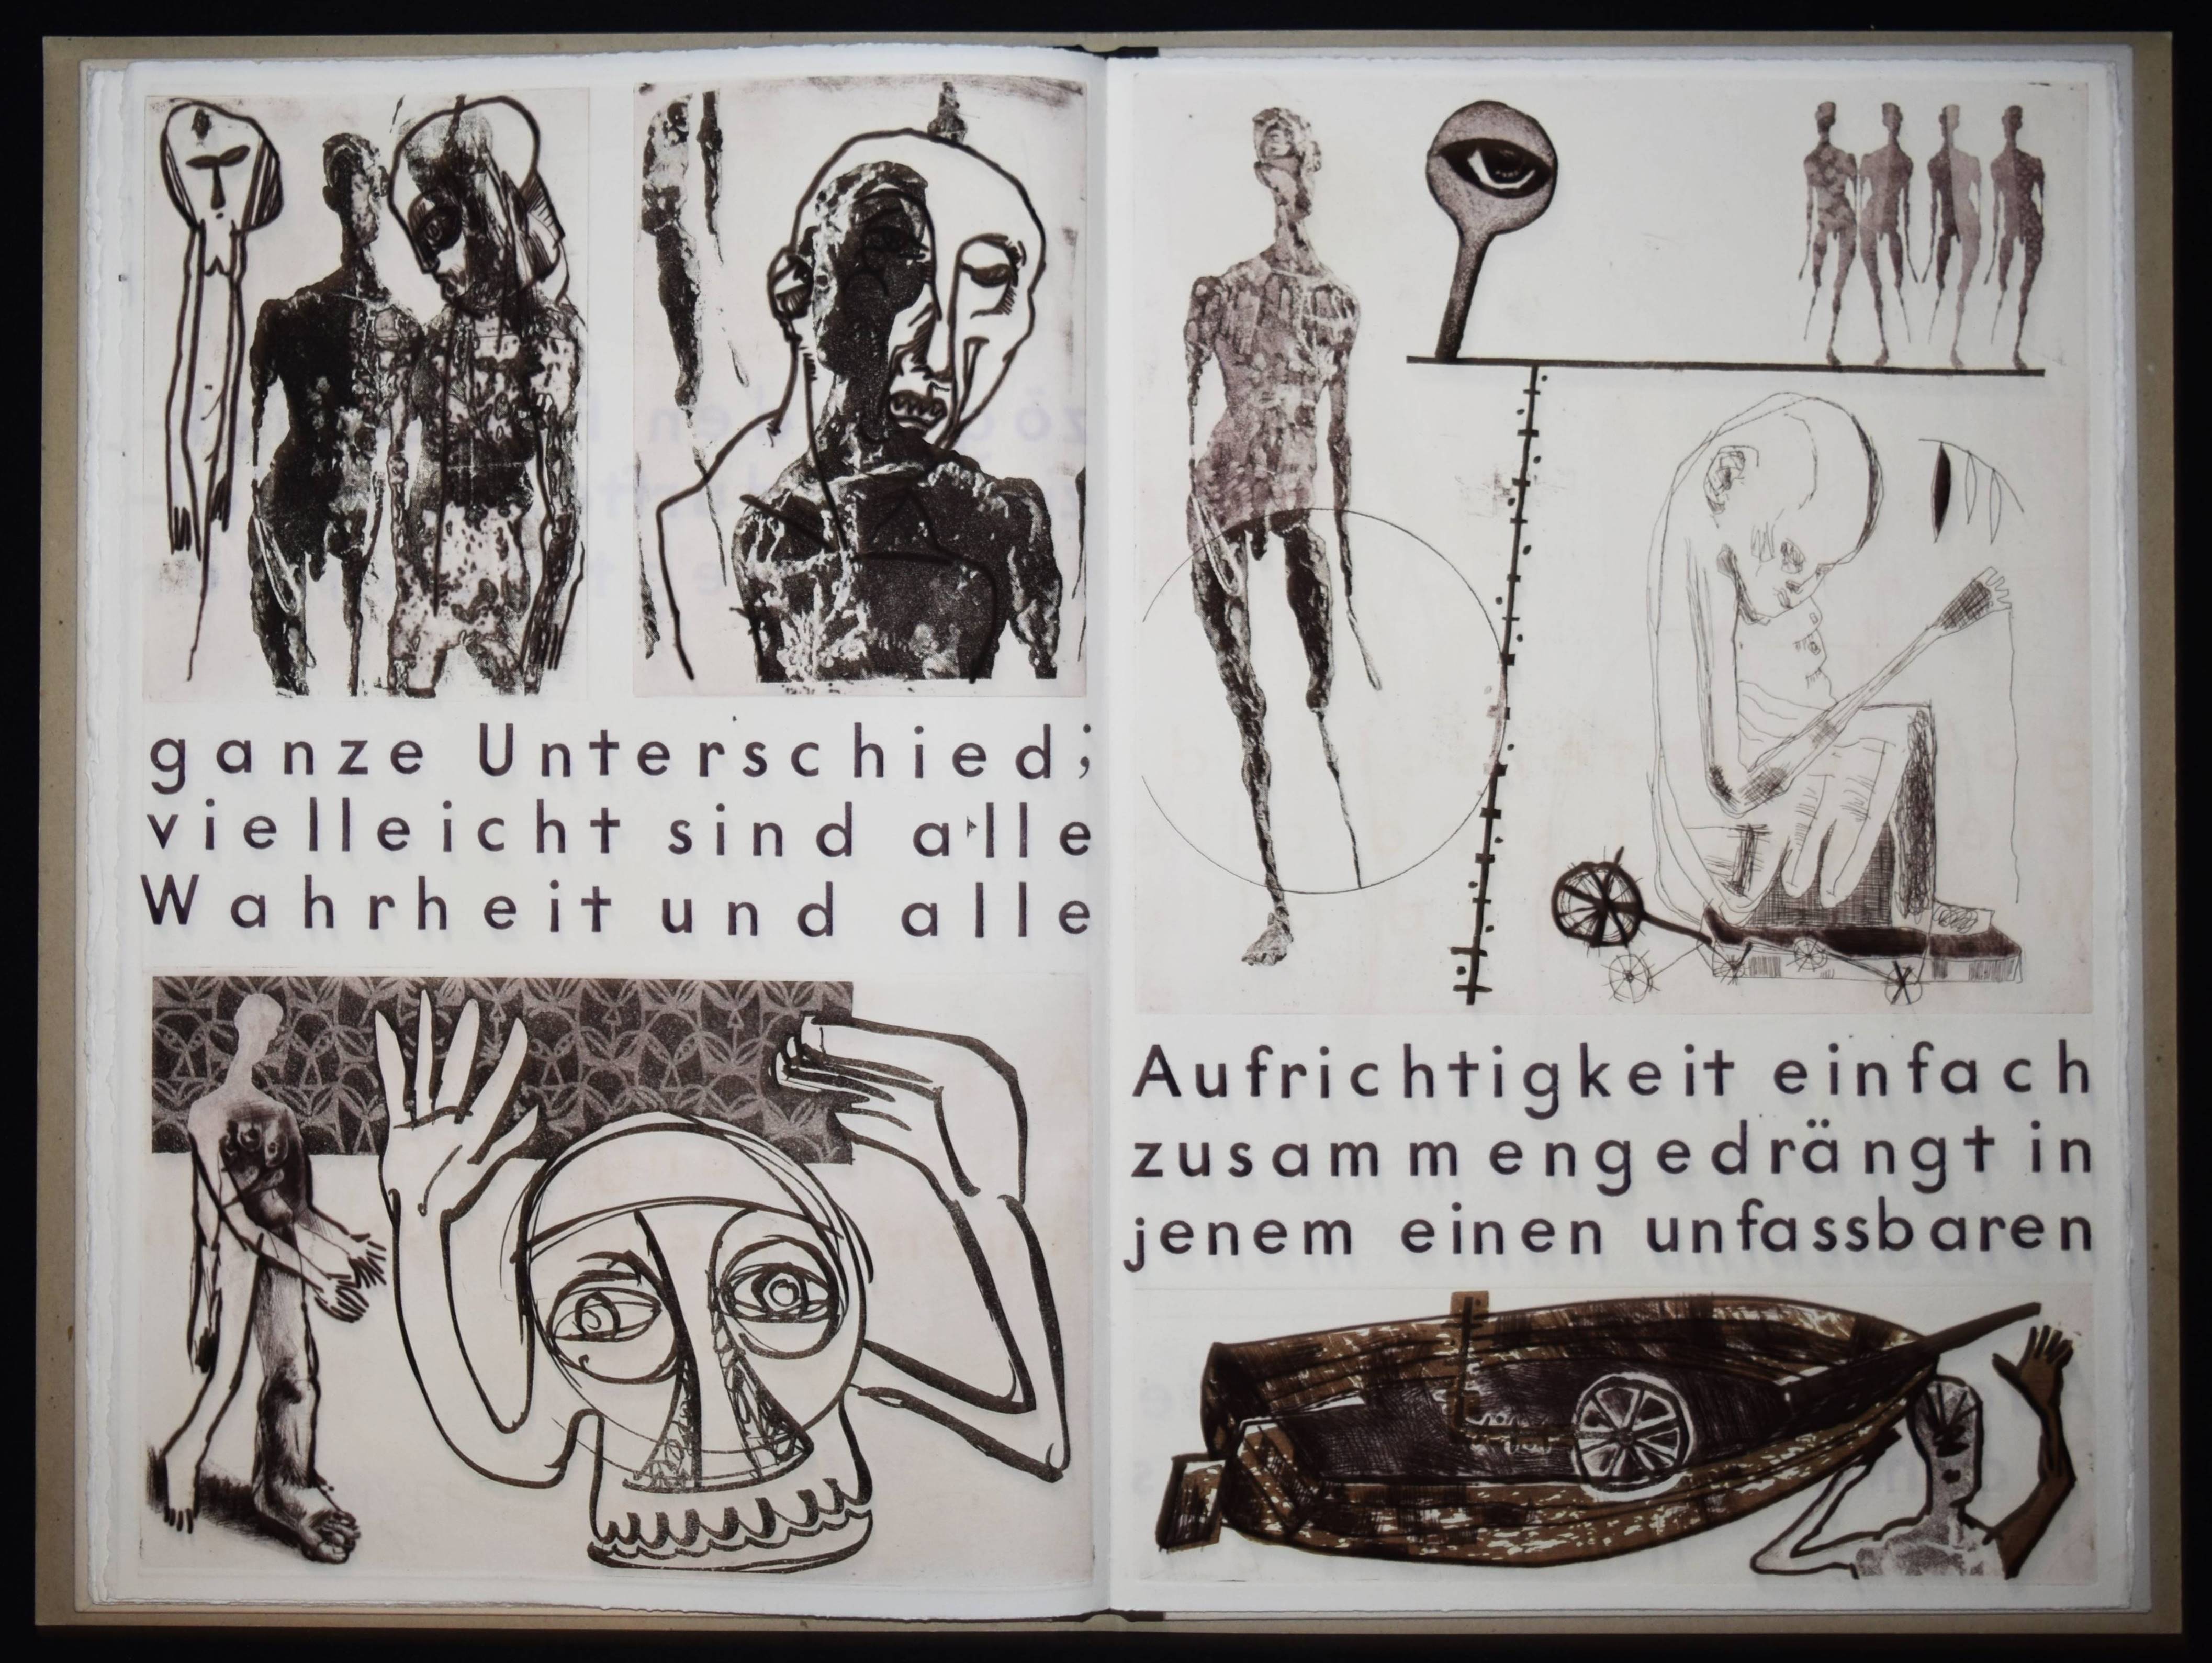 ganze Unterschied;
vielleicht sind alle
Wahrheit und alle
Aufrichtigkeit einfach
zusammengedrängt in
jenem einen unfassbaren